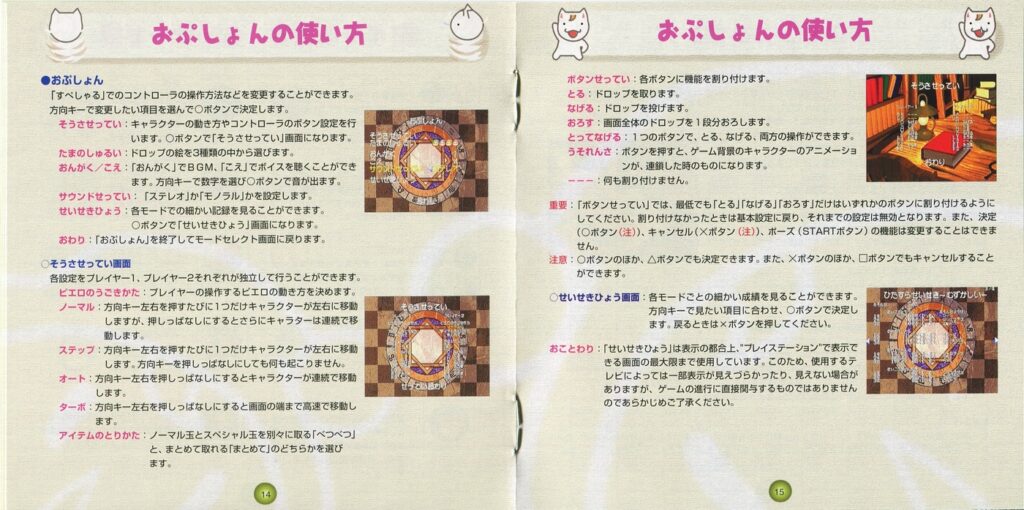 おぷしょんの使い方
●おぷしょん
「すぺしゃる」でのコントローラの操作方法などを変更することができます。
方向キーで変更したい項目を選んで○ボタンで決定します。
そうさせってい：キャラクターの動き方やコントローラのボタン設定を行
います。○ボタンで「そうさせってい」画面になります。
たまのしゅるい：ドロップの絵を3種類の中から選びます。
おんがく／こえ：「おんがく」でBGM、「こえ」でボイスを聴くことができ
ます。方向キーで数字を選び○ボタンで音が出ます。
サウンドせってい：「ステレオ」か「モノラル」かを設定します。
せいせきひょう：各モードでの細かい記録を見ることができます。
○ボタンで「せいせきひょう」画面になります。
おわり：「おぷしょん」を終了してモードセレクト画面に戻ります。
○そうさせってい画面
各設定をプレイヤー1、プレイヤー2それぞれが独立して行うことができます。
ピエロのうごきかた：プレイヤーの操作するピエロの動き方を決めます。
ノーマル：方向キー左右を押すたびに1つだけキャラクターが左右に移動
しますが、押しっぱなしにするとさらにキャラターは連続で移
動します。
ステップ：方向キー左右を押すたびに1つだけキャラクターが左右に移動
します。方向キーを押しっぱなしにしても何も起こりません。
オート：方向キー左右を押しっぱなしにするとキャラクターが連続で移動
します。
ターボ：方向キー左右を押しっぱなしにすると画面の端まで高速で移動し
ます。
アイテムのとりかた：ノーマル玉とスペシャル玉を別々に取る「べつべつ」
と、まとめて取れる「まとめて」のどちらかを選び
ます。
おぷしょん
そうさせってい
14
おぷしょんの使い方
ボタンせってい：各ボタンに機能を割り付けます。
とる：ドロップを取ります。
なげる：ドロップを投げます。
おろす：画面全体のドロップを1段分おろします。
とってなげる：1つのボタンで、とる、なげる、両方の操作ができます。
うそれんさ：ボタンを押すと、ゲーム背景のキャラクターのアニメーショ
ンが、連鎖した時のものになります。
ーーー：何も割り付けません。
そうさせってい
おわり
重要：「ボタンせってい」では、最低でも「とる」「なげる」「おろす」だけはいずれかのボタンに割り付けるように
してください。割り付けなかったときは基本設定に戻り、それまでの設定は無効となります。また、決定
（○ボタン（注））、キャンセル（×ボタン（注））、ポーズ（STARTボタン）の機能は変更することはできま
せん。
注意：○ボタンのほか、△ボタンでも決定できます。また、×ボタンのほか、□ボタンでもキャンセルすること
ができます。
○せいせきひょう画面：各モードごとの細かい成績を見ることができます。
方向キーで見たい項目に合わせ、○ボタンで決定し
ます。戻るときは×ボタンを押してください。
おことわり：「せいせきひょう」は表示の都合上、"プレイステーション"で表示で
きる画面の最大限まで使用しています。このため、使用するテ
レビによっては一部表示が見えづらかったり、見えない場合が
ありますが、ゲームの進行に直接関与するものではありません
のであらかじめご了承ください。
ひたすらせいせき～むずかしい～
15